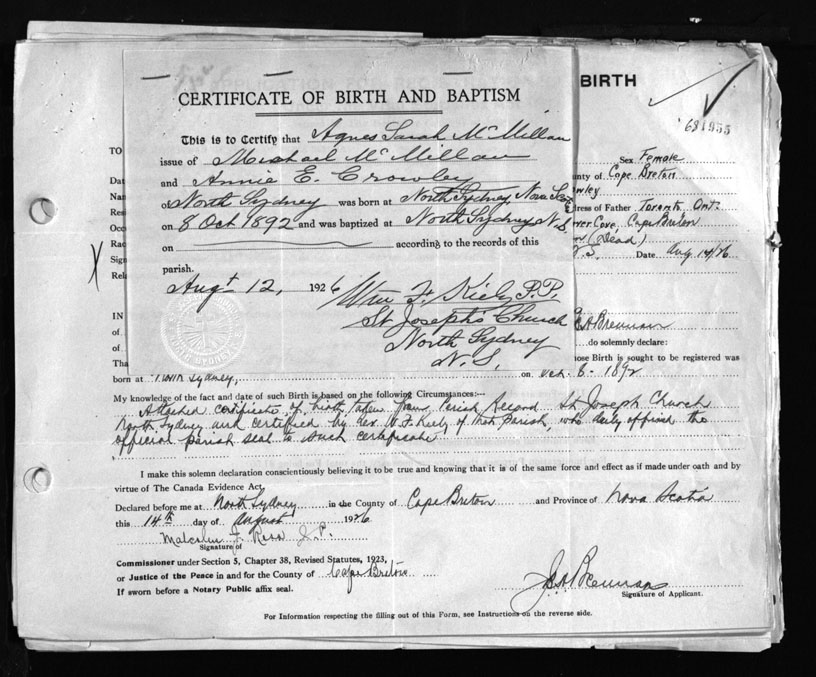 BIRTH
681955
CERTIFICATE OF BIRTH AND BAPTISM
This is to Certify that Agnes Sarah McMillan
issue of Michael McMillan
and Annie E. Crowley
of North Sydney was born at North Sydney, Nova Sco
on 8 Oct 1892 and was baptized at North Sydney N.S.
on according to the records of this
parish.
Augt 12, 1926
Wm F. Kiely P.P.
St Joseph's Church
North Sydney
N.S.
TO
Dat
Nam
Resi
Occ
Rac
Sign
Rela
IN
of
of
Tha
Sex Female
unty of Cape Breton
wley
dress of Father Toronto, Ont.
ver Cove, Cape Breton
(Dead)
N.S. Date Aug 14/26
Brennan
do solemnly declare:
hose Birth is sought to be registered was
born at North Sydney, on Oct. 8 - 1892
My knowledge of the fact and date of such Birth is based on the following Circumstances:—
Attached certificate of birth taken from Parish Record St. Joseph Church
North Sydney and certified by Rev. W. F. Kiely of that parish, who duly affixed the
official parish seal to such certificate
I make this solemn declaration conscientiously believing it to be true and knowing that it is of the same force and effect as if made under oath and by
virtue of The Canada Evidence Act.
Declared before me at North Sydney in the County of Cape Breton and Province of Nova Scotia
this 14th day of August 1926
Malcolm J. Ross J.P.
Signature of
Commissioner under Section 5, Chapter 38, Revised Statutes, 1923,
or Justice of the Peace in and for the County of Cape Breton
If sworn before a Notary Public affix seal.
J. A. Brennan
Signature of Applicant.
For Information respecting the filling out of this Form, see Instructions on the reverse side.